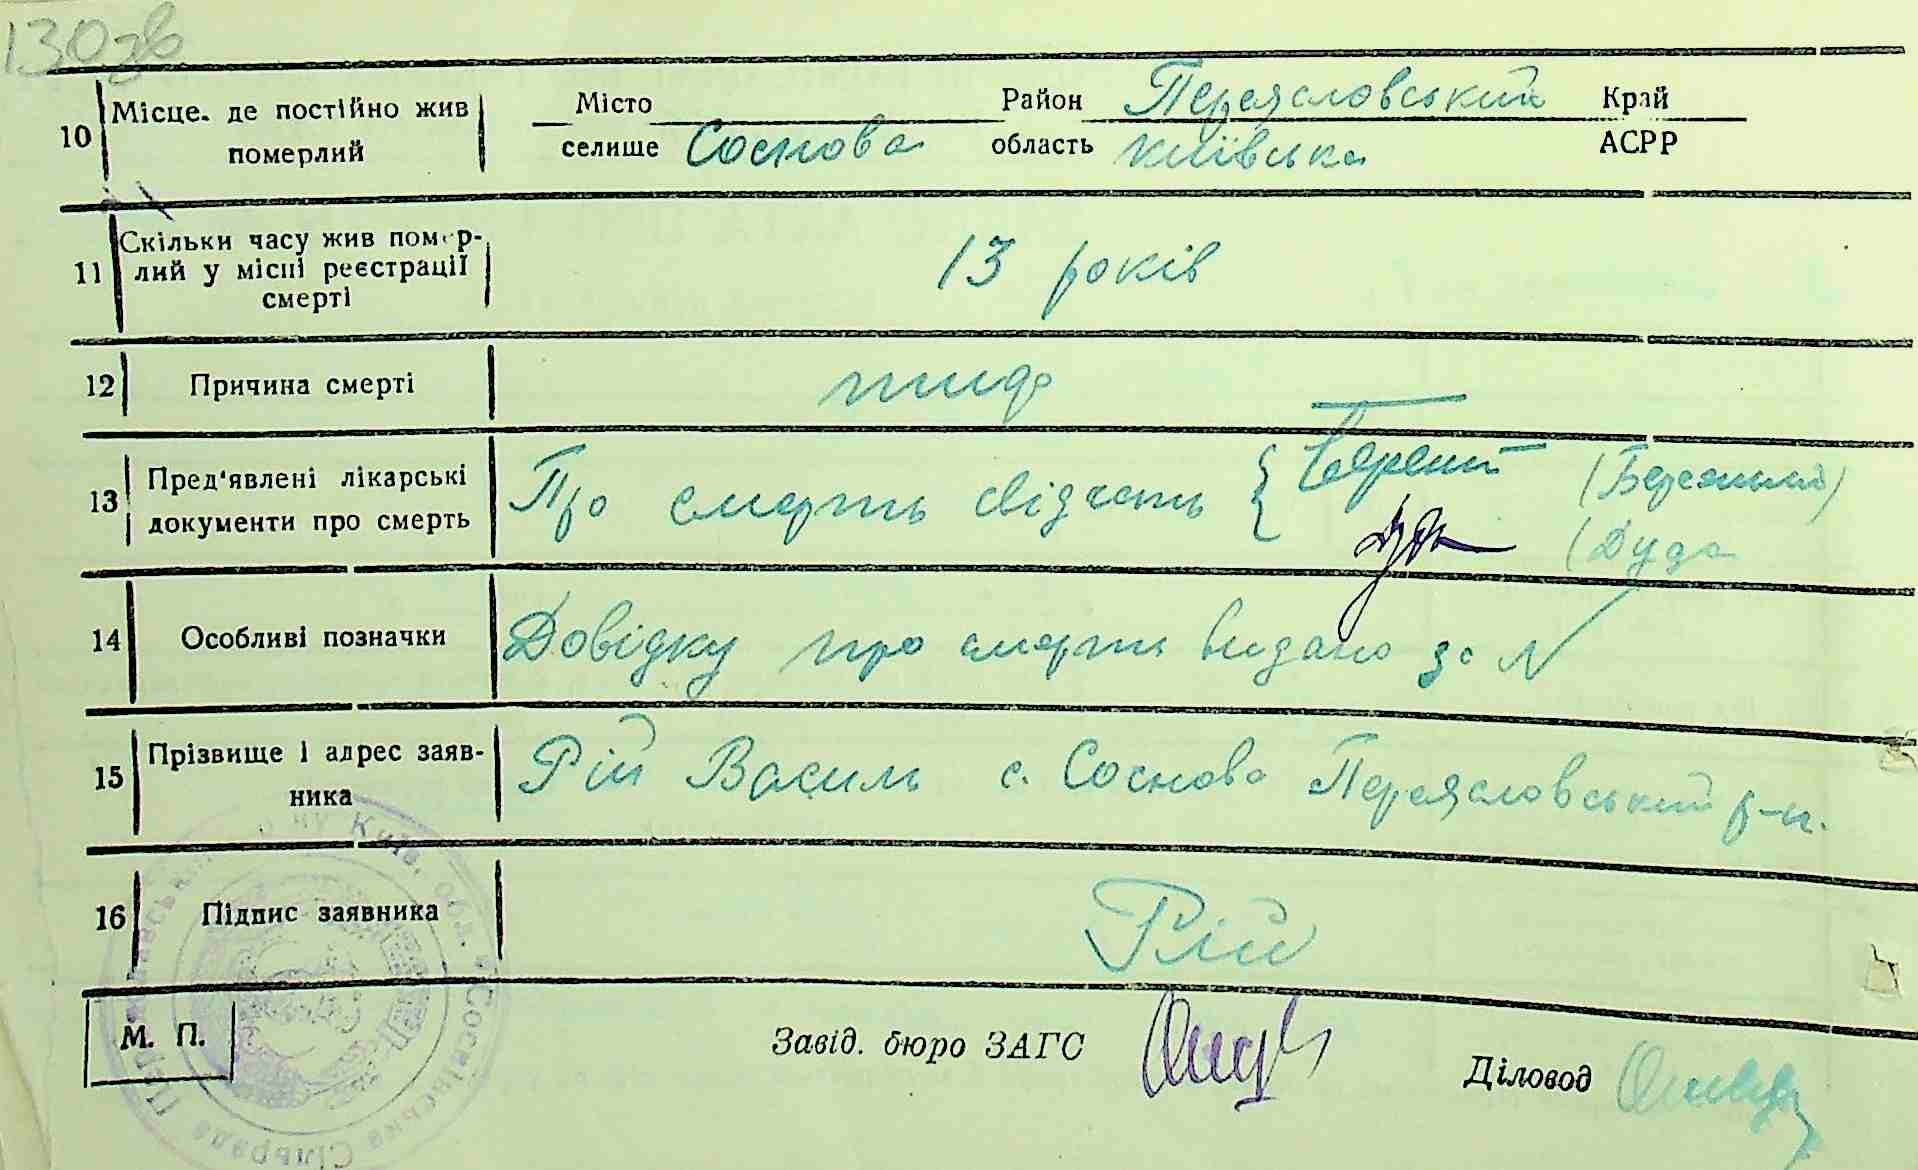 130зв
10 Місце. де постійно жив померлий
Місто Район Переясловський Край
селище Соснова область київська АСРР
11 Скільки часу жив помер-
лий у місці реєстрації
смерті
13 років
12 Причина смерті тиф
13 Пред'явлені лікарські
документи про смерть
Про смерть свідчать { (Бережний)
(Дуда
14 Особливі позначки Довідку про смерть видано за N
15 Прізвище і адрес заяв-
ника
Рій Василь с. Соснова Переясловський р-н.
16 Підпис заявника Рій
М. П. Завід. бюро ЗАГС
Діловод
Київ. обл. Соснівська Сільрада